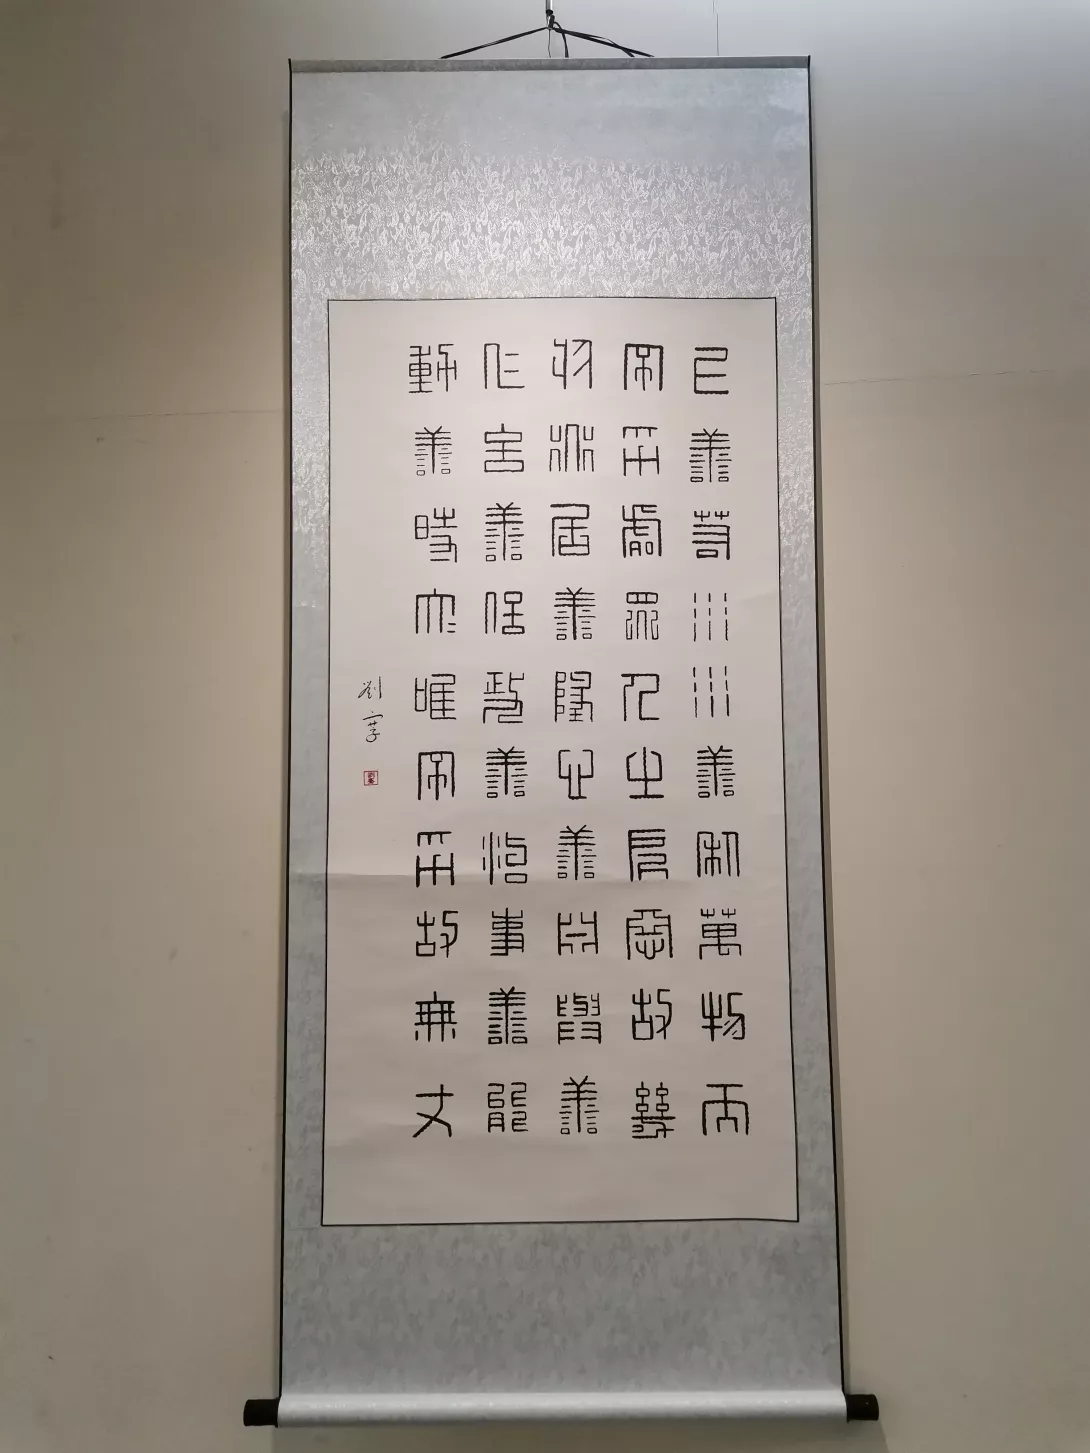 上善若水水善利萬物而
不爭處眾人之所惡故幾
於道居善地心善淵與善
仁言善信政善治事善能
動善時夫唯不爭故無尤
劉